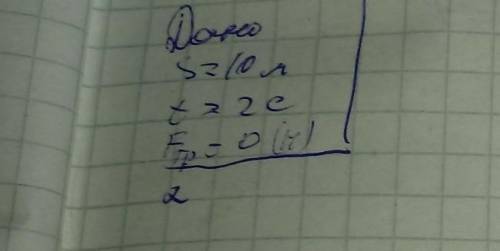 Дано
S = 10 м
t = 2 с
Fтр = 0 (Н)
2